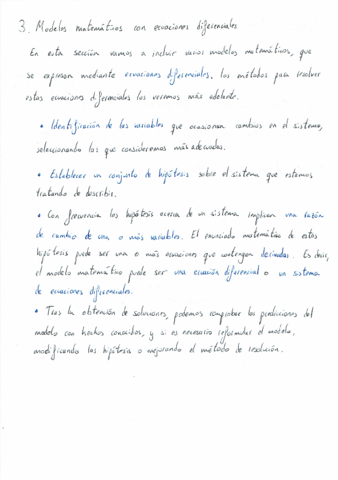 3. Modelos matemáticos con ecuaciones diferenciales
En esta sección vamos a incluir varios modelos matemáticos, que
se expresan mediante ecuaciones diferenciales, los métodos para resolver
estas ecuaciones diferenciales los veremos más adelante.
• Identificación de las variables que ocasionan cambios en el sistema,
seleccionando las que consideremos más adecuadas.
• Establecer un conjunto de hipótesis sobre el sistema que estamos
tratando de describir.
• Con frecuencia las hipótesis acerca de un sistema implican una razón
de cambio de una o más variables. El enunciado matemático de estas
hipótesis puede ser una o más ecuaciones que contengan derivadas. Es decir,
el modelo matemático puede ser una ecuación diferencial o un sistema
de ecuaciones diferenciales.
• Tras la obtención de soluciones, podemos comprobar las predicciones del
modelo con hechos conocidos, y si es necesario reformular el modelo,
modificando las hipótesis o mejorando el método de resolución.